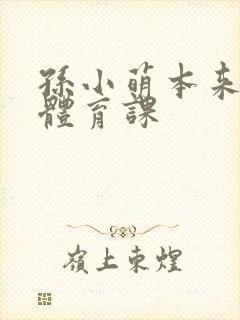 孫小萌本來
體育課
嶺上東煌